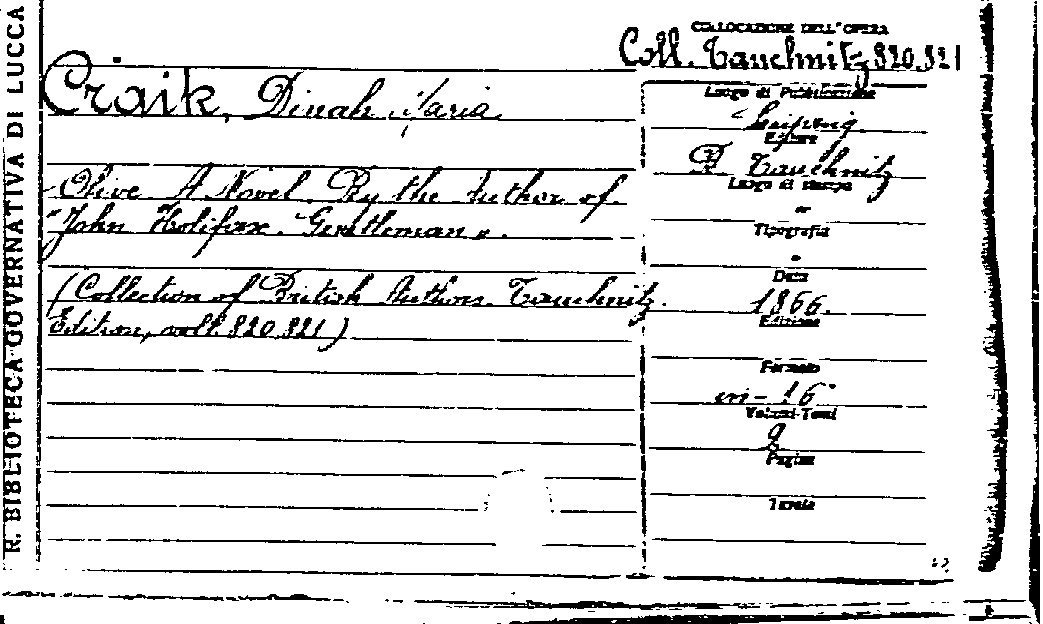 R. BIBLIOTECA GOVERNATIVA DI LUCCA
COLLOCAZIONE DELL'OPERA
Coll. Tauchnitz 820.821
Craik, Dinah Maria
Olive A Novel. By the Author of
"John Holifax. Gentleman".
(Collection of British Authors. Tauchnitz
Edition, voll. 820.821)
Luogo di Pubblicazione
Leipzig
Editore
B. Tauchnitz
Luogo di stampa
"
Tipografia
"
Data
1866.
Edizione
Formato
in-16°
Volumi-Tomi
2
Pagine
Tavole